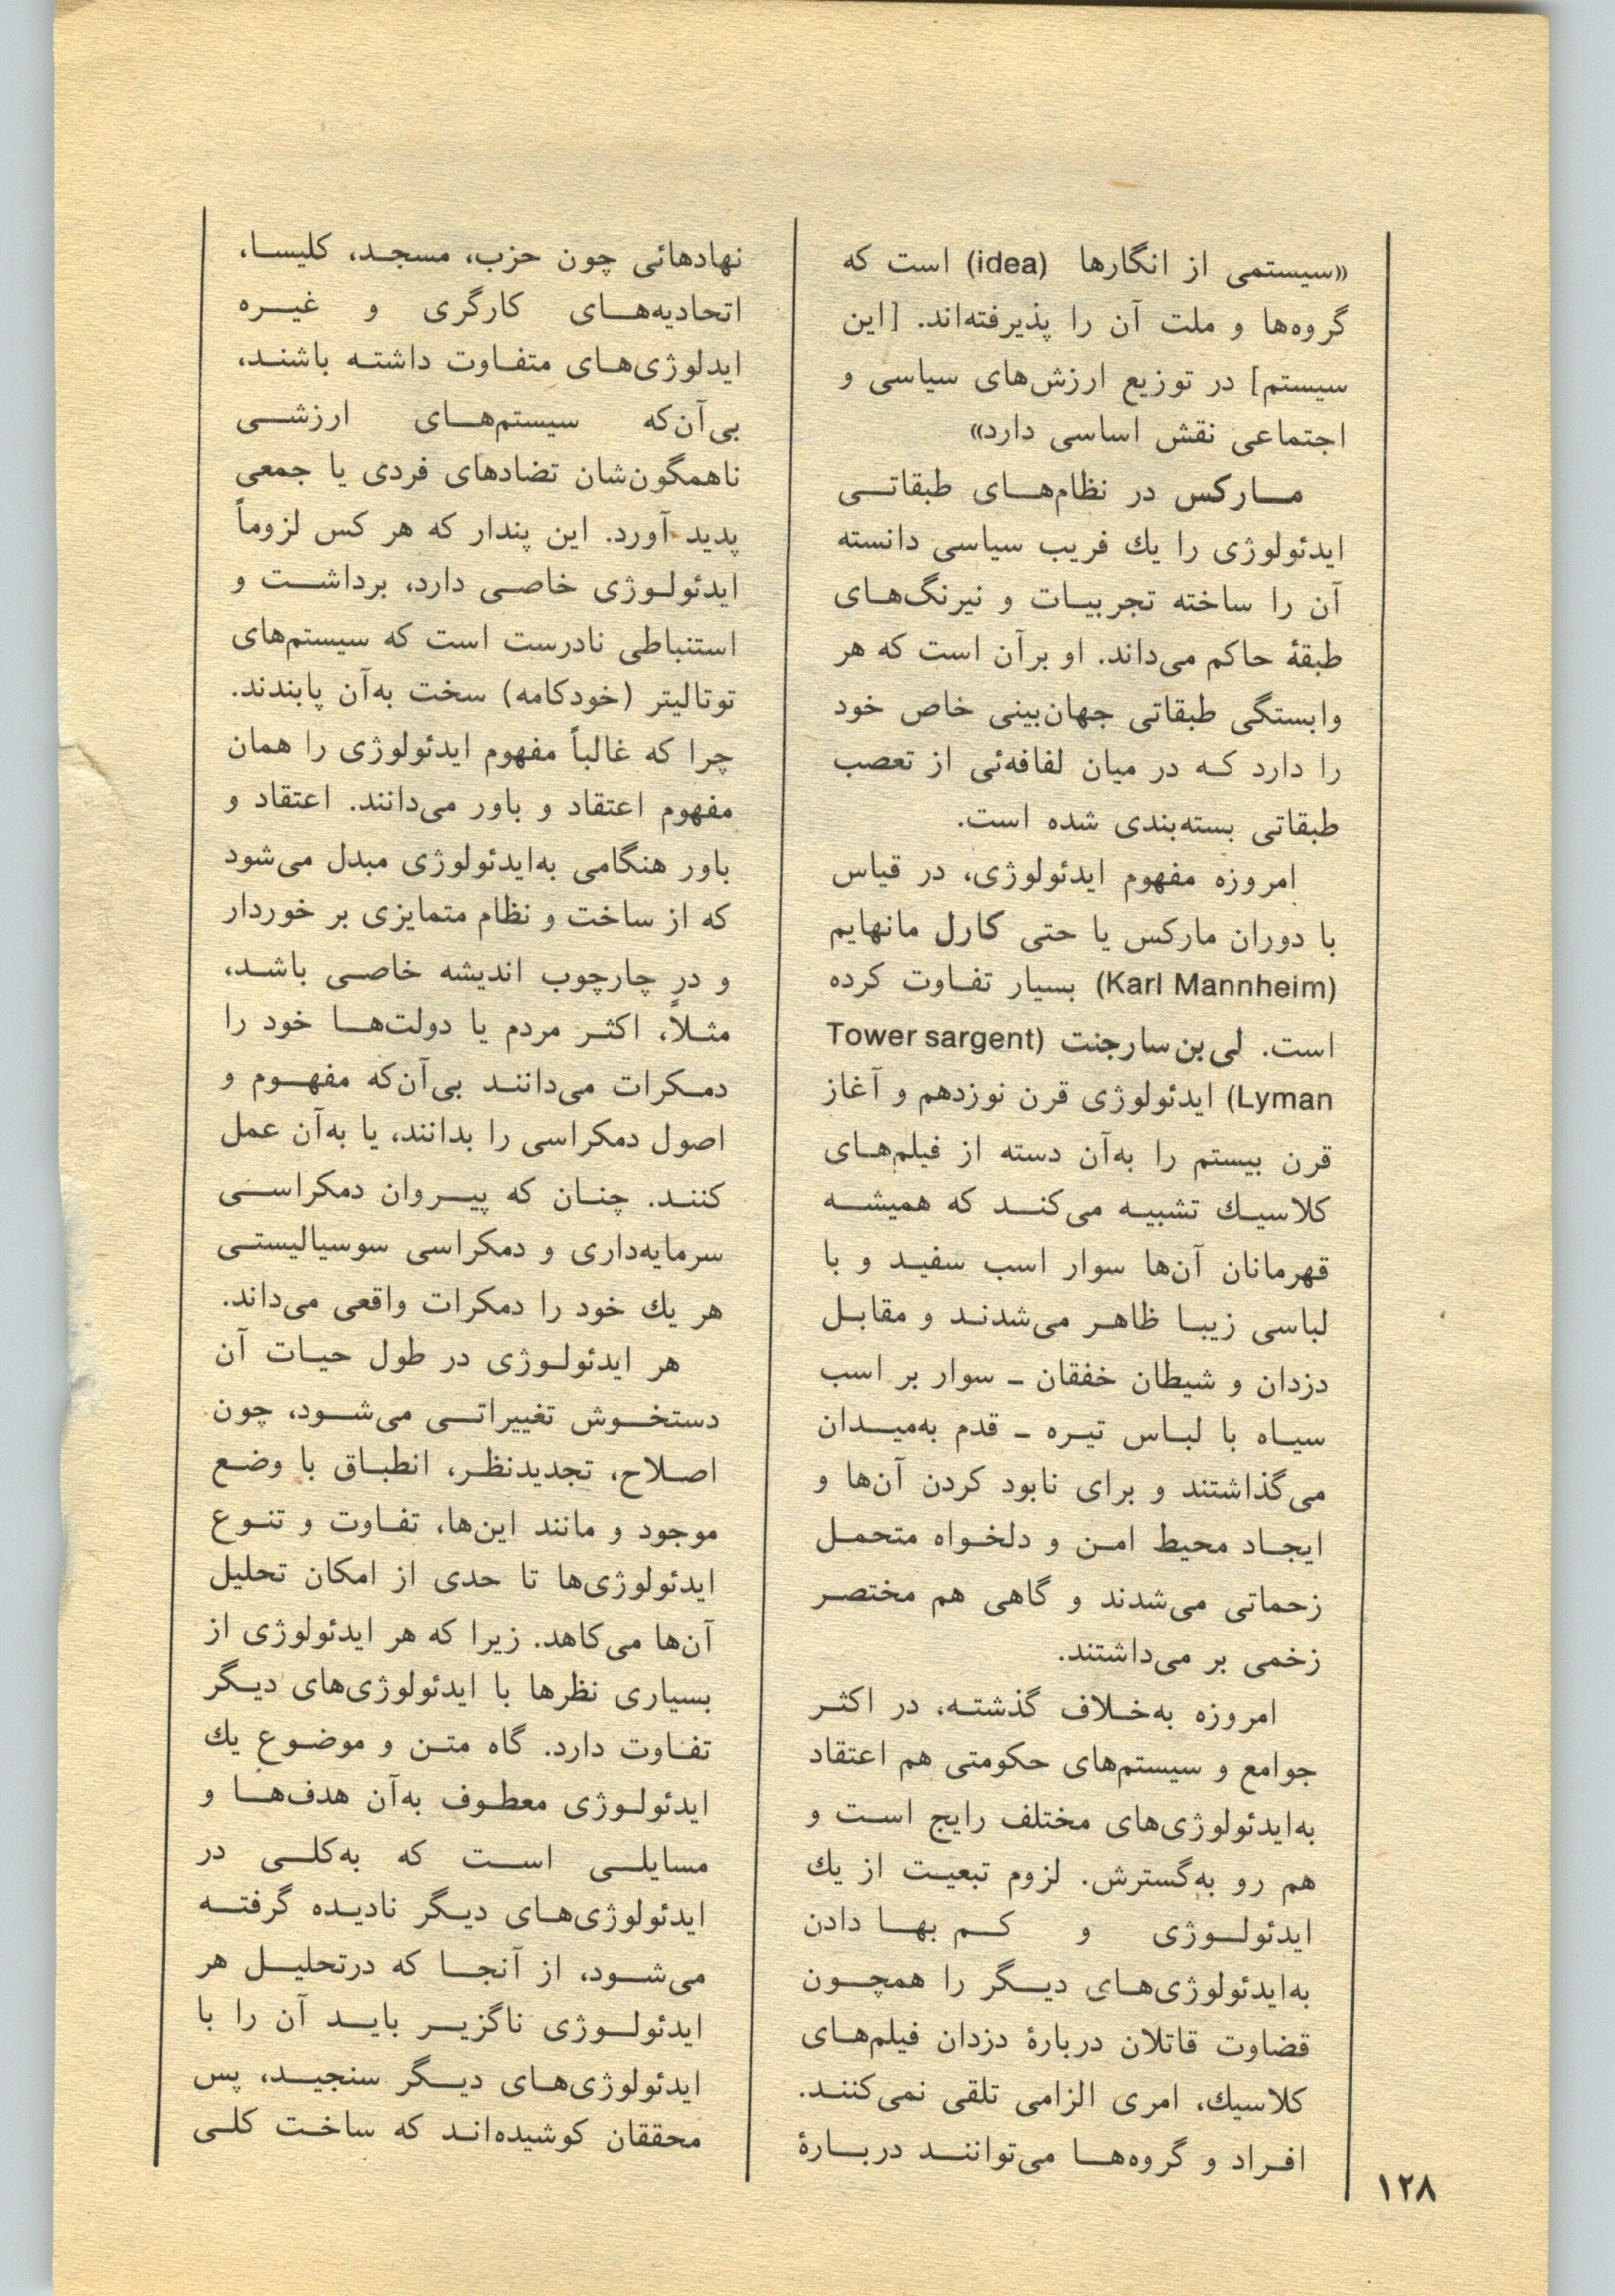 «سیستمی از انگارها (idea) است که
گروه‌ها و ملت آن را پذیرفته‌اند. [این
سیستم] در توزیع ارزش‌های سیاسی و
اجتماعی نقش اساسی دارد»
مارکس در نظام‌های طبقاتی
ایدئولوژی را یك فریب سیاسی دانسته
آن را ساخته تجربیات و نیرنگ‌های
طبقهٔ حاکم می‌داند. او برآن است که هر
وابستگی طبقاتی جهان‌بینی خاص خود
را دارد که در میان لفافه‌ئی از تعصب
طبقاتی بسته‌بندی شده است.
امروزه مفهوم ایدئولوژی، در قیاس
با دوران مارکس یا حتی کارل مانهایم
(Karl Mannheim) بسیار تفاوت کرده
است. لی‌بن‌سارجنت (Tower sargent
Lyman) ایدئولوژی قرن نوزدهم و آغاز
قرن بیستم را به‌آن دسته از فیلم‌های
کلاسیك تشبیه می‌کند که همیشه
قهرمانان آن‌ها سوار اسب سفید و با
لباسی زیبا ظاهر می‌شدند و مقابل
دزدان و شیطان خفقان ـ سوار بر اسب
سیاه با لباس تیره ـ قدم به‌میدان
می‌گذاشتند و برای نابود کردن آن‌ها و
ایجاد محیط امن و دلخواه متحمل
زحماتی می‌شدند و گاهی هم مختصر
زخمی بر می‌داشتند.
امروزه به‌خلاف گذشته، در اکثر
جوامع و سیستم‌های حکومتی هم اعتقاد
به‌ایدئولوژی‌های مختلف رایج است و
هم رو به‌گسترش. لزوم تبعیت از یك
ایدئولوژی و کم بها دادن
به‌ایدئولوژی‌های دیگر را همچون
قضاوت قاتلان دربارهٔ دزدان فیلم‌های
کلاسیك، امری الزامی تلقی نمی‌کنند.
افراد و گروه‌ها می‌توانند دربارهٔ
نهادهائی چون حزب، مسجد، کلیسا،
اتحادیه‌های کارگری و غیره
ایدلوژی‌های متفاوت داشته باشند،
بی‌آن‌که سیستم‌های ارزشی
ناهمگون‌شان تضادهای فردی یا جمعی
پدید آورد. این پندار که هر کس لزوماً
ایدئولوژی خاصی دارد، برداشت و
استنباطی نادرست است که سیستم‌های
توتالیتر (خودکامه) سخت به‌آن پابندند.
چرا که غالباً مفهوم ایدئولوژی را همان
مفهوم اعتقاد و باور می‌دانند. اعتقاد و
باور هنگامی به‌ایدئولوژی مبدل می‌شود
که از ساخت و نظام متمایزی بر خوردار
و در چارچوب اندیشه خاصی باشد،
مثلاً، اکثر مردم یا دولت‌ها خود را
دمکرات می‌دانند بی‌آن‌که مفهوم و
اصول دمکراسی را بدانند، یا به‌آن عمل
کنند. چنان که پیروان دمکراسی
سرمایه‌داری و دمکراسی سوسیالیستی
هر یك خود را دمکرات واقعی می‌داند.
هر ایدئولوژی در طول حیات آن
دستخوش تغییراتی می‌شود، چون
اصلاح، تجدیدنظر، انطباق با وضع
موجود و مانند این‌ها، تفاوت و تنوع
ایدئولوژی‌ها تا حدی از امکان تحلیل
آن‌ها می‌کاهد. زیرا که هر ایدئولوژی از
بسیاری نظرها با ایدئولوژی‌های دیگر
تفاوت دارد. گاه متن و موضوع یك
ایدئولوژی معطوف به‌آن هدف‌ها و
مسایلی است که به‌کلی در
ایدئولوژی‌های دیگر نادیده گرفته
می‌شود، از آنجا که درتحلیل هر
ایدئولوژی ناگزیر باید آن را با
ایدئولوژی‌های دیگر سنجید، پس
محققان کوشیده‌اند که ساخت کلی
۱۲۸